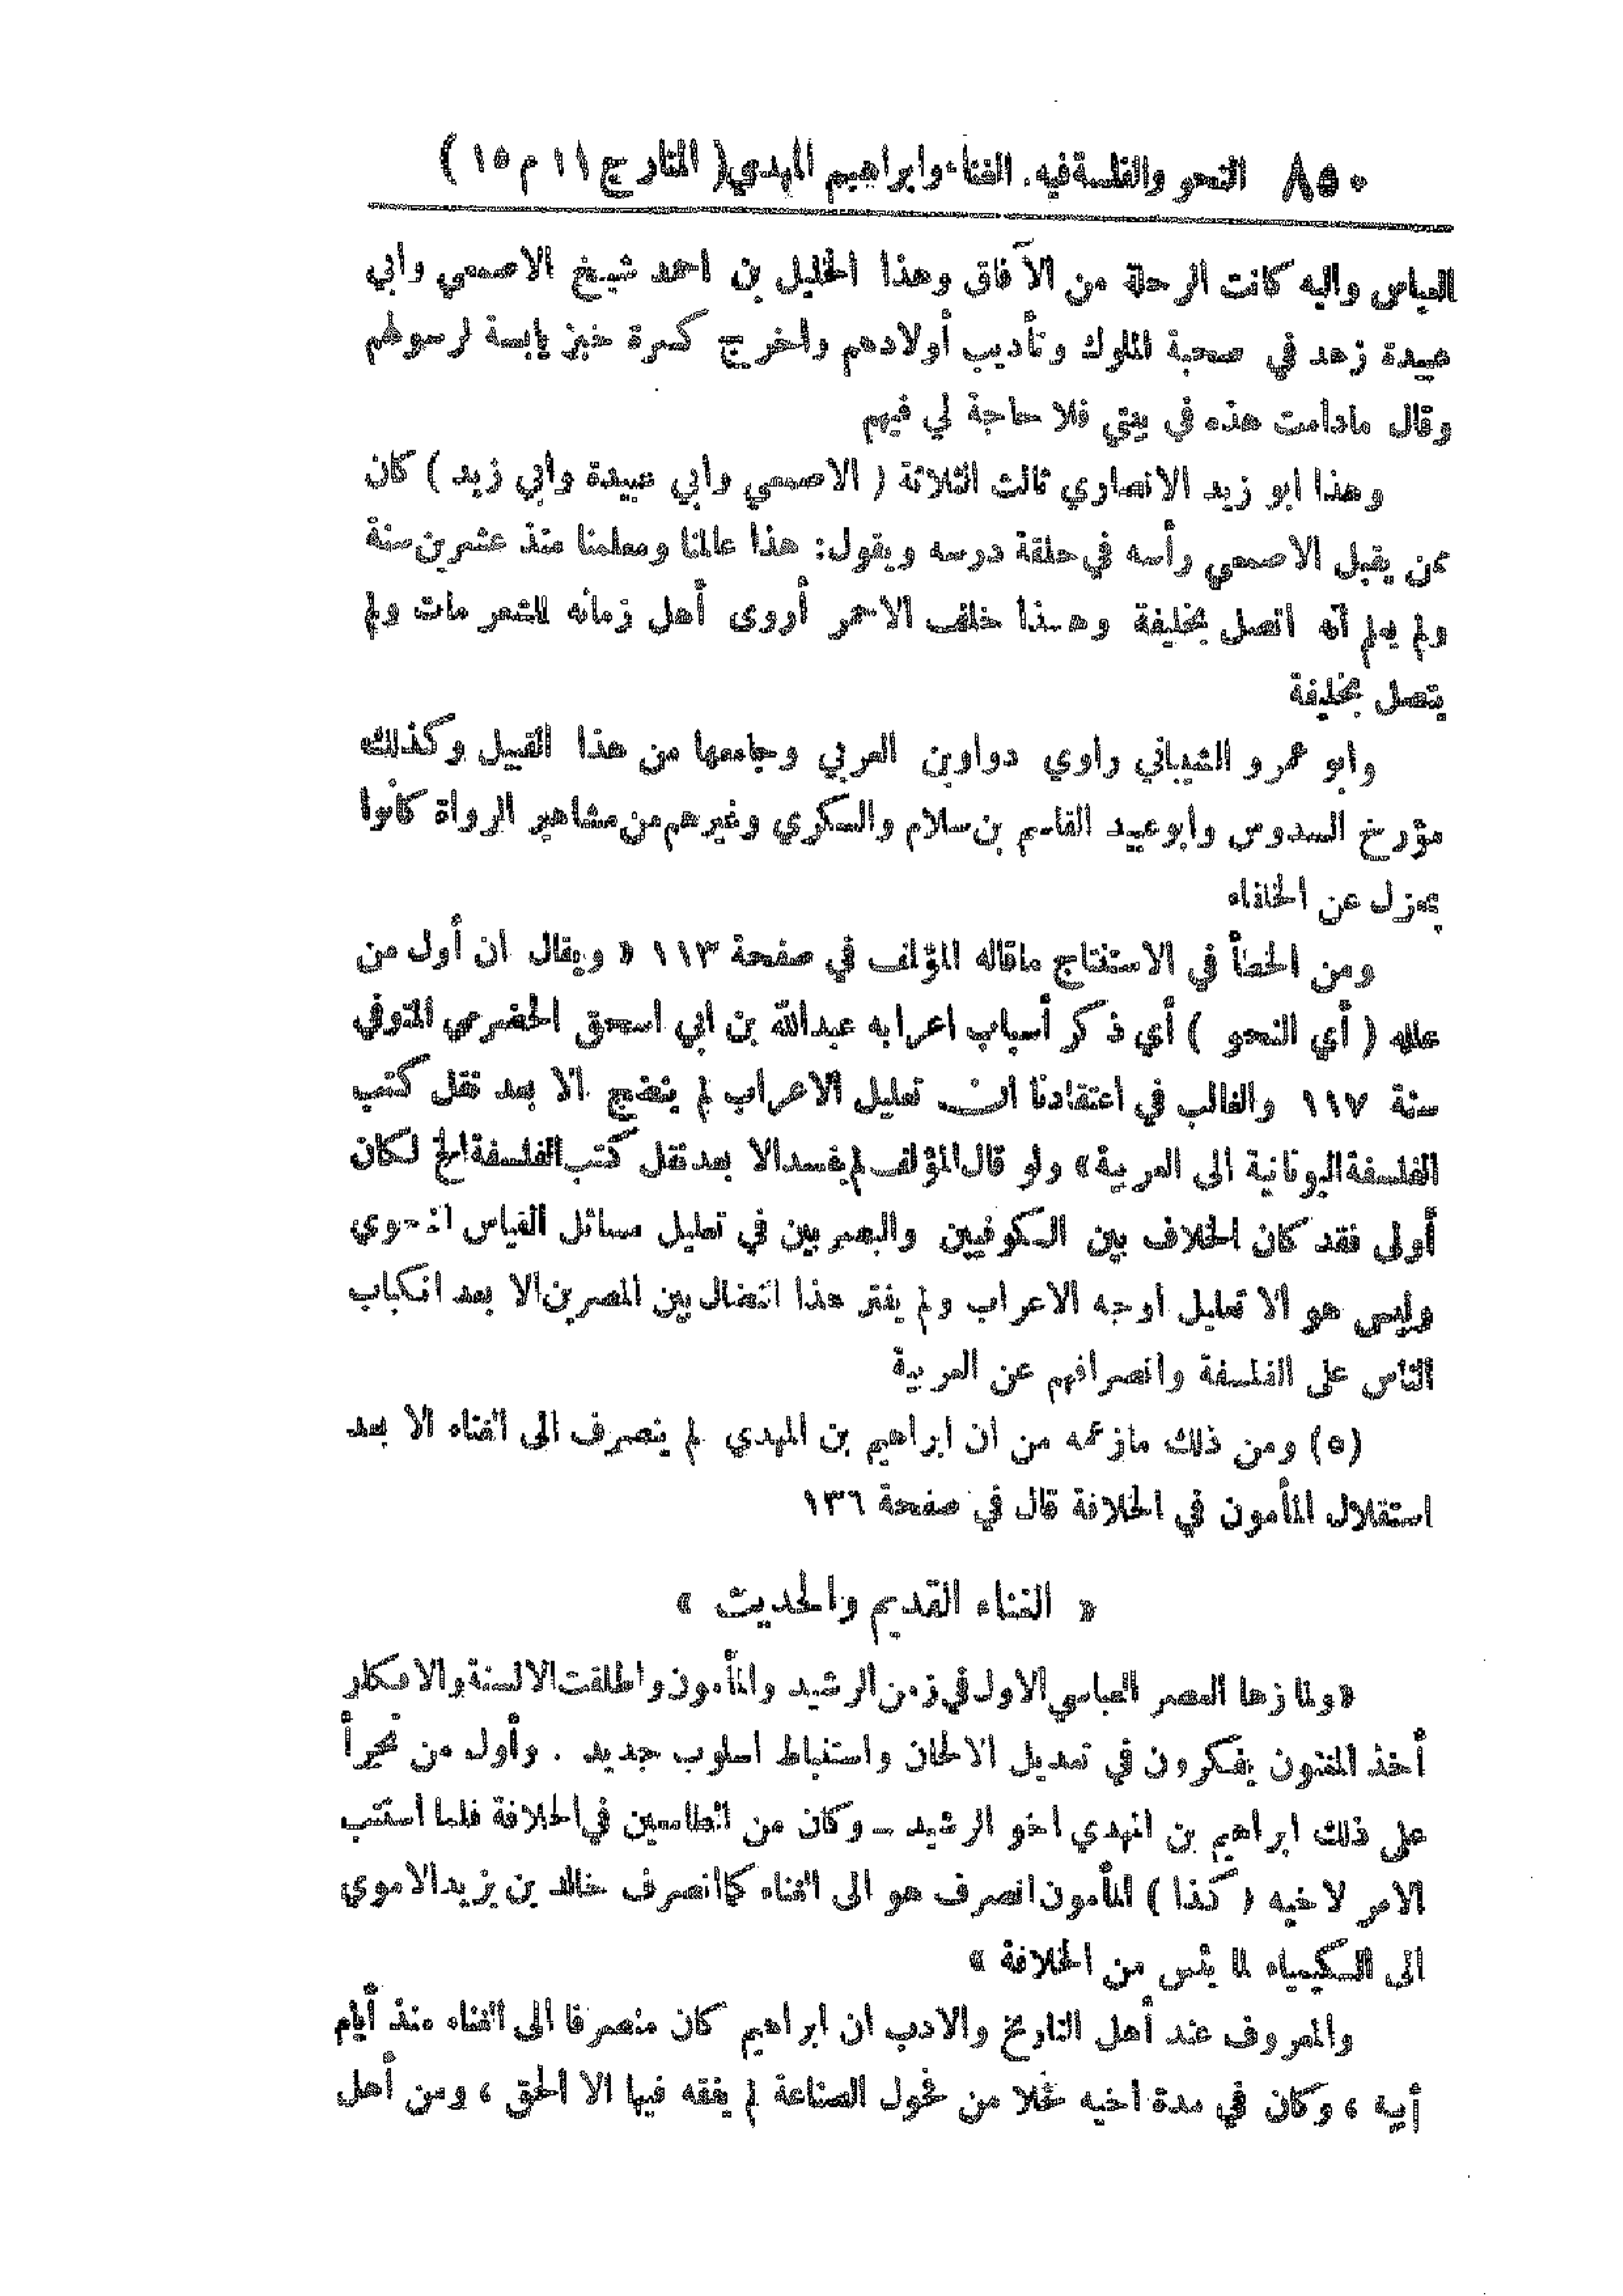 ٨٥٠ النحو والفلسفة فيه. الغناء وابراهيم المهدي ( المنار ج ١١ م ١٥ )
العباس واليه كانت الرحلة من الآفاق وهذا الخليل بن احمد شيخ الاصمعي وابي
عبيدة زهد في صحبة الملوك وتأديب أولادهم واخرج كسرة خبز يابسة لرسولهم
وقال مادامت هذه في بيتي فلا حاجة لي فيهم
وهذا ابو زيد الانصاري ثالث الثلاثة ( الاصمعي وابي عبيدة وأبي زيد ) كان
ممن يقبل الاصمعي رأسه في حلقة درسه ويقول: هذا عالمنا ومعلمنا منذ عشرين سنة
ولم يعلم أنه اتصل بخليفة وهذا خلف الاحمر أروى أهل زمانه للشعر مات ولم
يتصل بخليفة
وابو عمرو الشيباني راوي دواوين العربي وجامعها من هذا القبيل وكذلك
مؤرخ السدوس وابو عبيد القاسم بن سلام والسكري وغيرهم من مشاهير الرواة كانوا
بمعزل عن الخلفاء
ومن الخطأ في الاستنتاج ماقاله المؤلف في صفحة ١١٣ « ويقال ان أول من
علله ( أي النحو ) أي ذكر أسباب اعرابه عبدالله بن ابي اسحق الحضرمي المتوفي
سنة ١١٧ والغالب في اعتقادنا ان تعليل الاعراب لم ينضج الا بعد نقل كتب
الفلسفة اليونانية الى العربية» ولو قال المؤلف لم يفسد الا بعد نقل كتب الفلسفة الخ لكان
أولى فقد كان الخلاف بين الكوفيين والبصريين في تعليل مسائل القياس النحوي
وليس هو الا تعليل اوجه الاعراب ولم يفتر هذا النضال بين المصرين الا بعد انكباب
الناس على الفلسفة وانصرافهم عن العربية
(٥) ومن ذلك مازعمه من ان ابراهيم بن المهدي لم ينصرف الى الغناء الا بعد
استقلال المأمون في الخلافة قال في صفحة ١٣٦
« الغناء القديم والحديث »
«ولما زها العصر العباسي الاول في زمن الرشيد والمأمون واطلقت الالسنة والافكار
أخذ المغنون يفكرون في تعديل الالحان واستنباط اسلوب جديد . وأول من تجرأ
على ذلك ابراهيم بن المهدي اخو الرشيد – وكان من الطامعين في الخلافة فلما استتب
الامر لاخيه ( كذا ) المأمون انصرف هو الى الغناء كما انصرف خالد بن يزيد الاموي
الى الكيمياء لما يئس من الخلافة »
والمعروف عند أهل التاريخ والادب ان ابراهيم كان منصرفا الى الغناء منذ أيام
أبيه ، وكان في مدة اخيه فحلا من فحول الصناعة لم يفقه فيها الا الحق ، ومن أهل